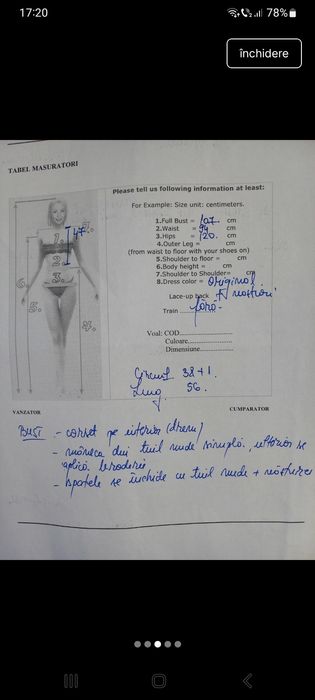 17:20
78%
închidere
TABEL MASURATORI
Please tell us following information at least:
For Example: Size unit: centimeters.
1.Full Bust = 107 cm
2.Waist = 94 cm
3.Hips = 120. cm
4.Outer Leg = cm
(from waist to floor with your shoes on)
5.Shoulder to floor = cm
6.Body height = cm
7.Shoulder to Shoulder= cm
8.Dress color = original
Lace-up back nasturi
Train fără.
Voal: COD
Culoare
Dimensiune
47
1.
2.
3.
4.
5.
6.
7.
38+1.
Lung 56.
VANZATOR
CUMPARATOR
BUST - corset pe interior (dren)
- mâneca din tiul nude simplă, ulterior se
aplică broderii
- spatele se închide cu tiul nude + năsturei